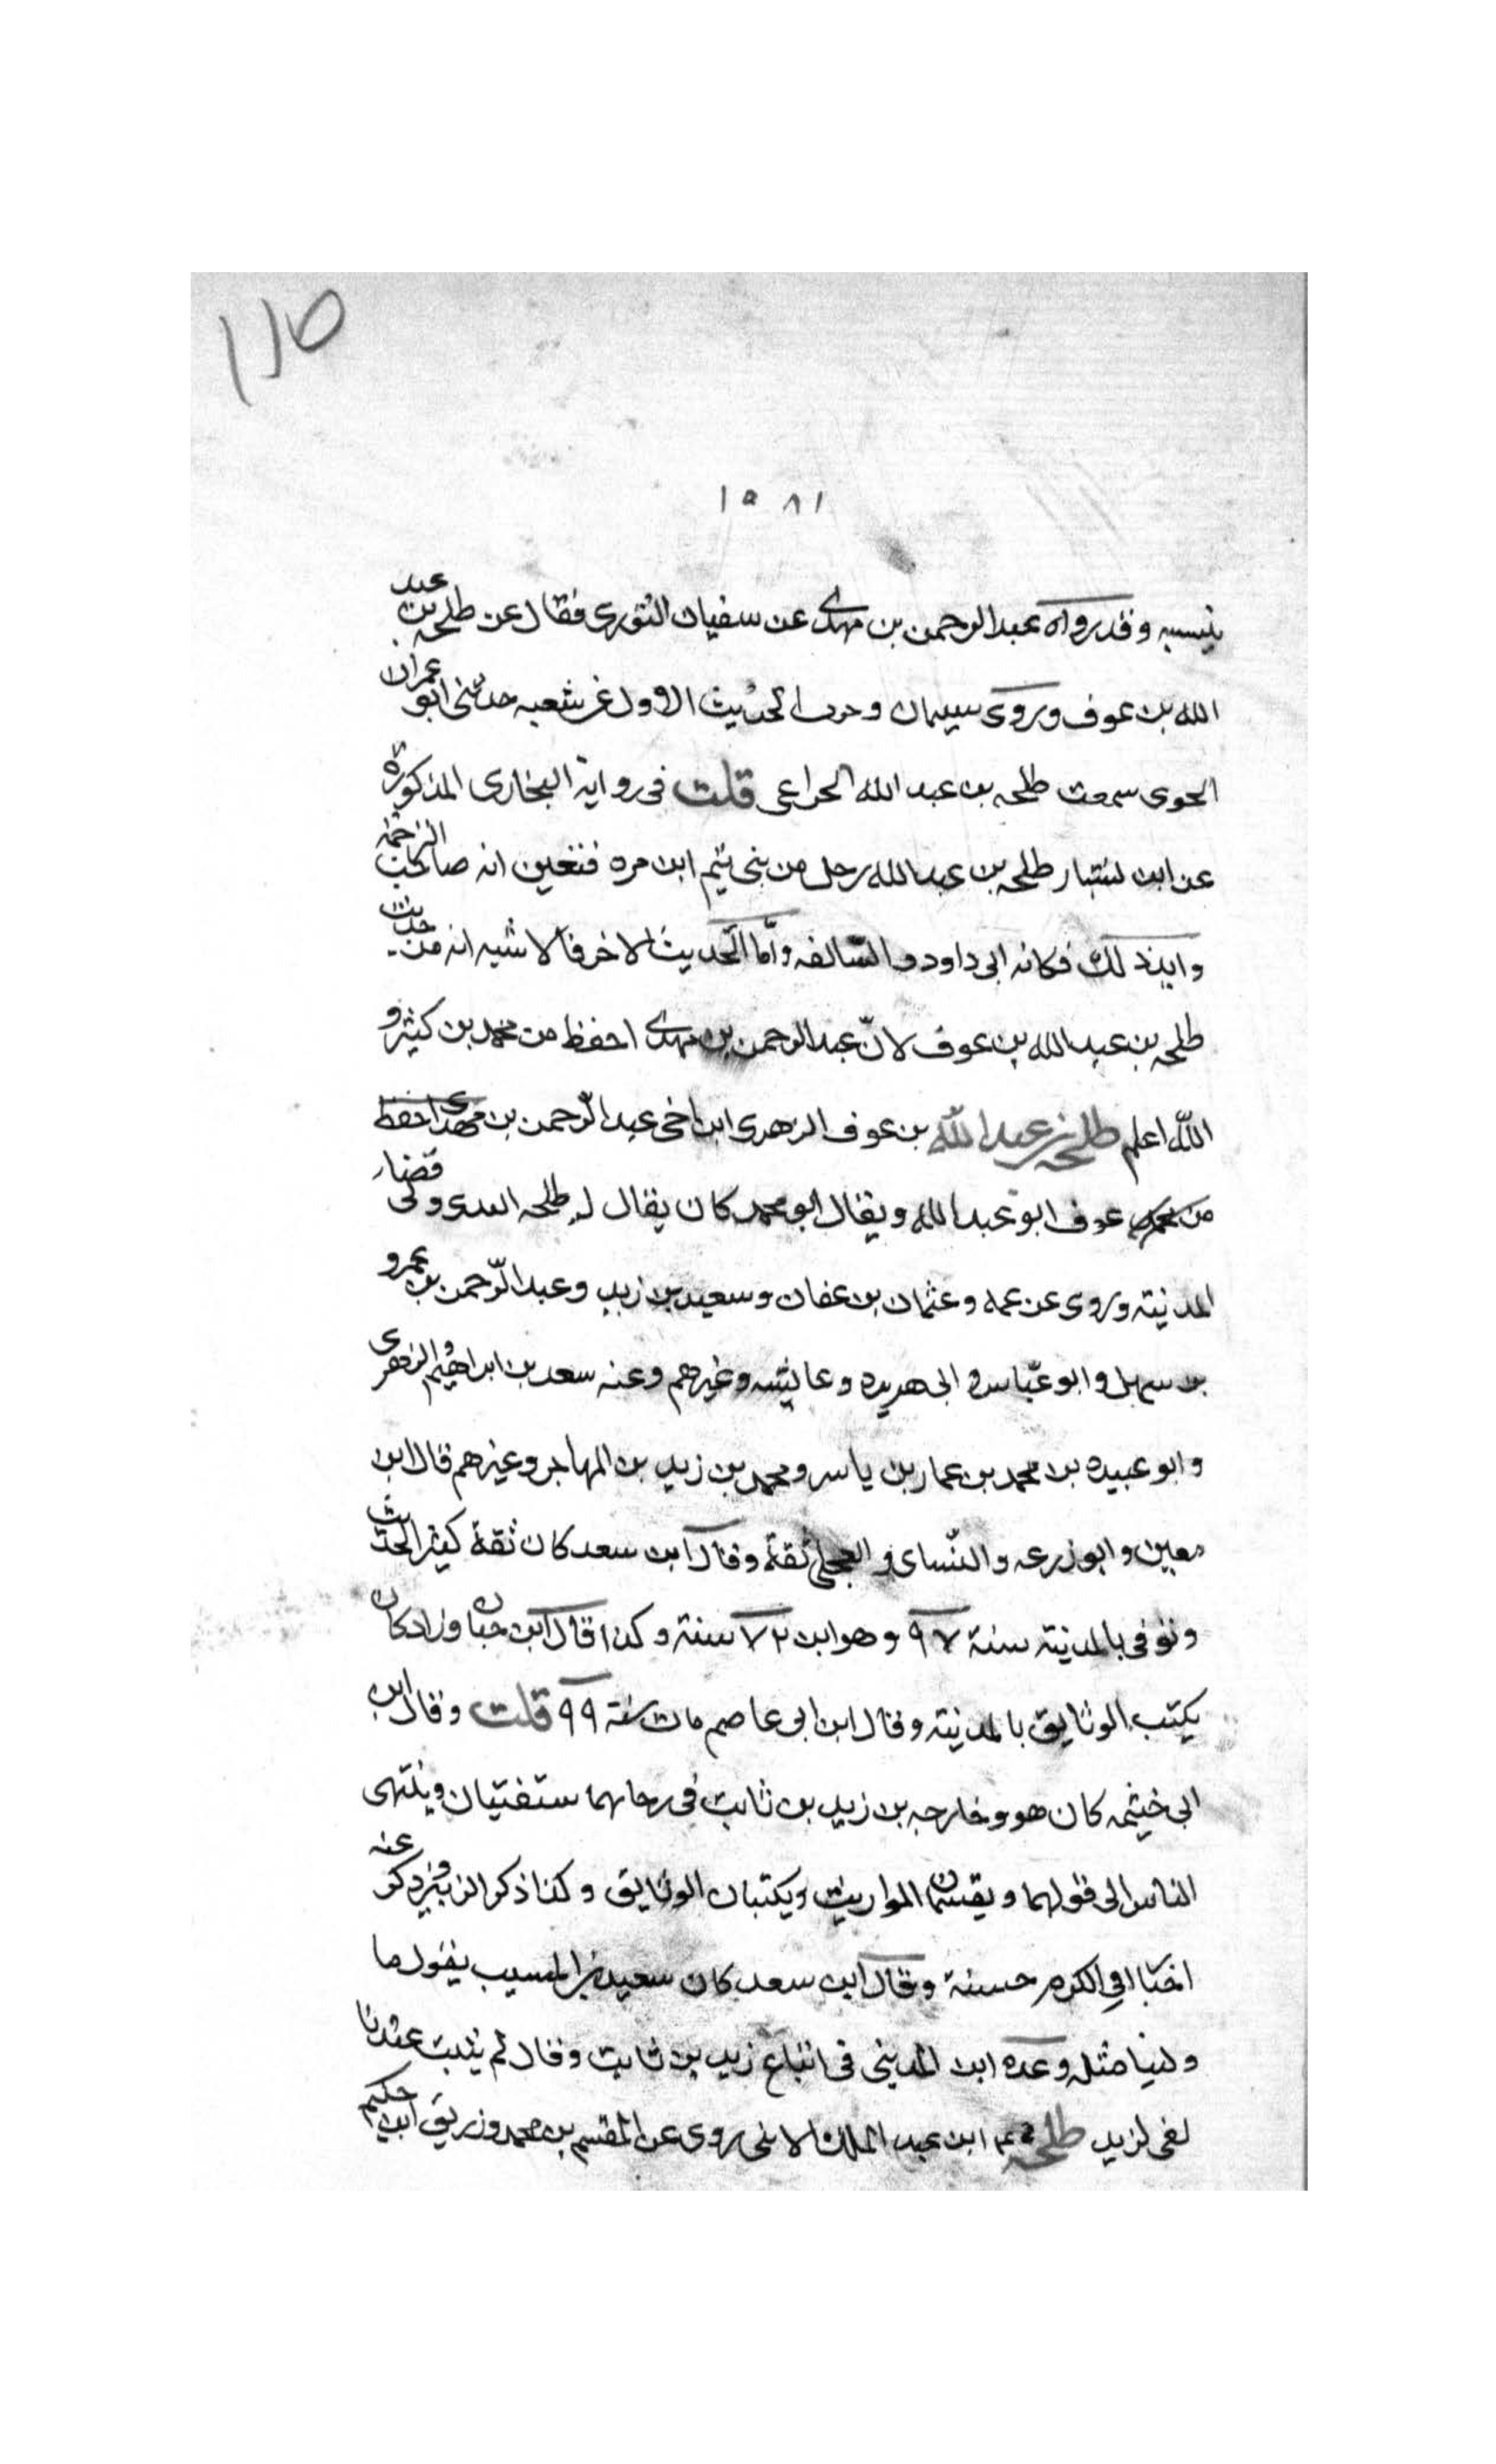 ١١٥
١٥٨١
ينسبه وقد رواه عبد الرحمن بن مهدى عن سفيان الثورى فقال عن طلحه بن عبد
الله بن عوف وروى سليمان وحرب الحديث الاول عن شعبه حدثنى ابو عمران
الجوى سمعت طلحه بن عبد الله الخراعى قلت فى رواية البخارى المذكورة
عن ابن بشار طلحه بن عبد الله رجل من بنى تيم ابن مره فتعين انه صاحب الترجمة
وايد ذلك فكانه ابى داود السالفه وأمّا الحديث الاخر فالاشبه انه من حديث
طلحه بن عبد الله بن عوف لانّ عبد الرحمن بن مهدى احفظ من محمد بن كثير و
اللّه اعلم طلحه بن عبد اللّه بن عوف الزهرى ابن اخى عبد الرّحمن بن مهدى احفظ
من عوف ابو عبد الله ويقال ابو محمد كان يقال له طلحه الندى ولى قضاء
المدينة وروى عن عمه وعثمان بن عفان وسعيد بن زيد وعبد الرّحمن بن عمرو
بن سهل وابو عبّاس و ابى هريره وعايشه وغيرهم وعنه سعد بن ابراهيم والزهرى
وابو عبيده بن محمد بن عمار بن ياسر ومحمد بن زيد بن المهاجر وغيرهم قال ابن
معين وابو زرعه والنّساى والعجلى ثقة وقال ابن سعد كان ثقة كثير الحديث
وتوفى بالمدينة سنة ٩٧ وهو ابن ٧٢ سنة وكذا قال ابن حبان وزاد كان
يكتب الوثايق بالمدينة وقال ابن ابى عاصم مات سنة ٩٩ قلت وقال ابن
ابى خيثمه كان هو وخارجه بن زيد بن ثابت فى زمانهما يستفتيان وينتهى
الناس الى قولهما ويقسمان المواريث ويكتبان الوثايق وكذا ذكر الزبير وذكر عنه
اخبارا فى الكرم حسنة وقال ابن سعد كان سعيد بن المسيب يقول ما
ولينا مثله وعده ابن المدينى فى اتباع زيد بن ثابت وقال لم يثبت عندنا
لقى لزيد طلحه ابن عبد الملك الايلى روى عن القسم بن محمد وزريق ابن حكيم